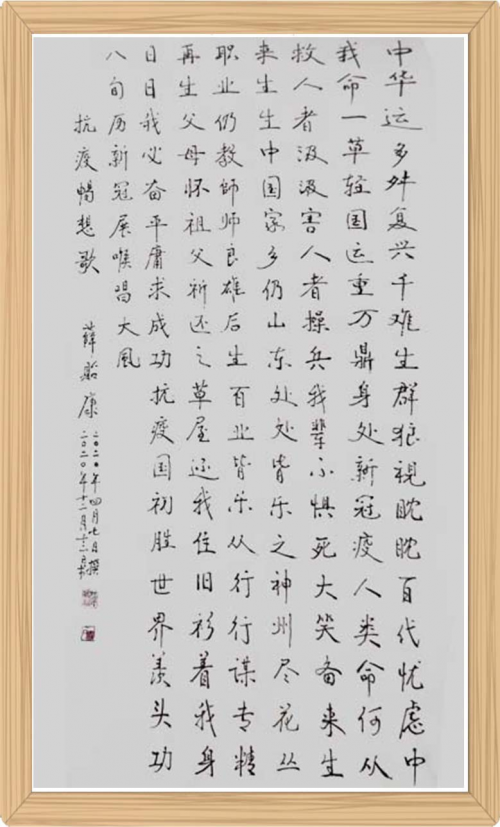 中华运多舛复兴千难生群狼视眈眈百代忧虑中
我命一草轻国运重万鼎身处新冠疫人类命何从
救人者汲汲害人者操兵我辈不惧死大笑备来生
来生生中国家乡仍山东处处皆乐之神州尽花丛
职业仍教師师良雄后生百业皆乐从行行谋专精
再生父母怀祖父祈还之草屋还我住旧衫着我身
日日我必奋平庸求成功抗疫国初胜世界羡头功
八旬历新冠展喉唱大风
抗疫畅想歌 薛贻康
二〇二〇年四月七日撰
二〇二〇年十二月